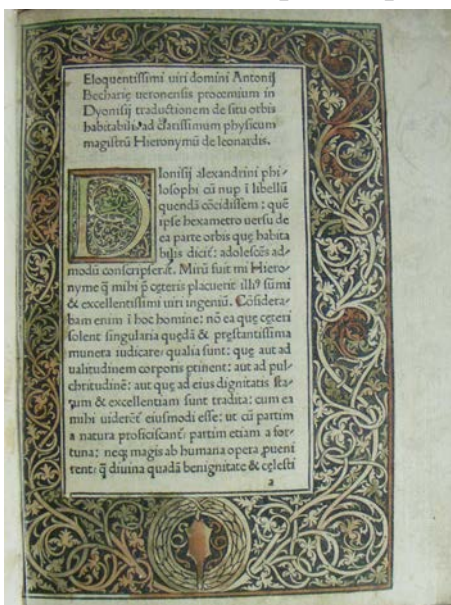 Eloquentissimi uiri domini Antonij
Becharię ueronensis proœmium in
Dyonisij traductionem de situ orbis
habitabilis ad clarissimum physicum
magistrū Hieronymū de leonardis.
DIonisij alexandrini phi⸗
losophi cū nup ī libellū
quendā cōcidissem : quē
ipse hexametro uersu de
ea parte orbis quę habita
bilis dicit̄ : adolescēs ad⸗
modū conscripserat. Mirū fuit mi Hiero⸗
nyme q̄ mihi p̄ cęteris placuerit illiꝰ sūmi
& excellentissimi uiri ingeniū. Cōsidera⸗
bam enim ī hoc homine : nō ea quę cęteri
solent singularia quędā & pręstantissima
munera iudicare, qualia sunt : quę aut ad
ualitudinem corporis ꝑtinent : aut ad pul⸗
chritudinē : aut quę ad eius dignitatis sta⸗
tum & excellentiam sunt tradita : cum ea
mihi uiderēt̄ eiusmodi esse : ut cū partim
a natura proficiscant̄ : partim etiam a for⸗
tuna : neqꝫ magis ab humana opera ꝓueni
rent : q̄ diuina quadā benignitate & cęlesti
a